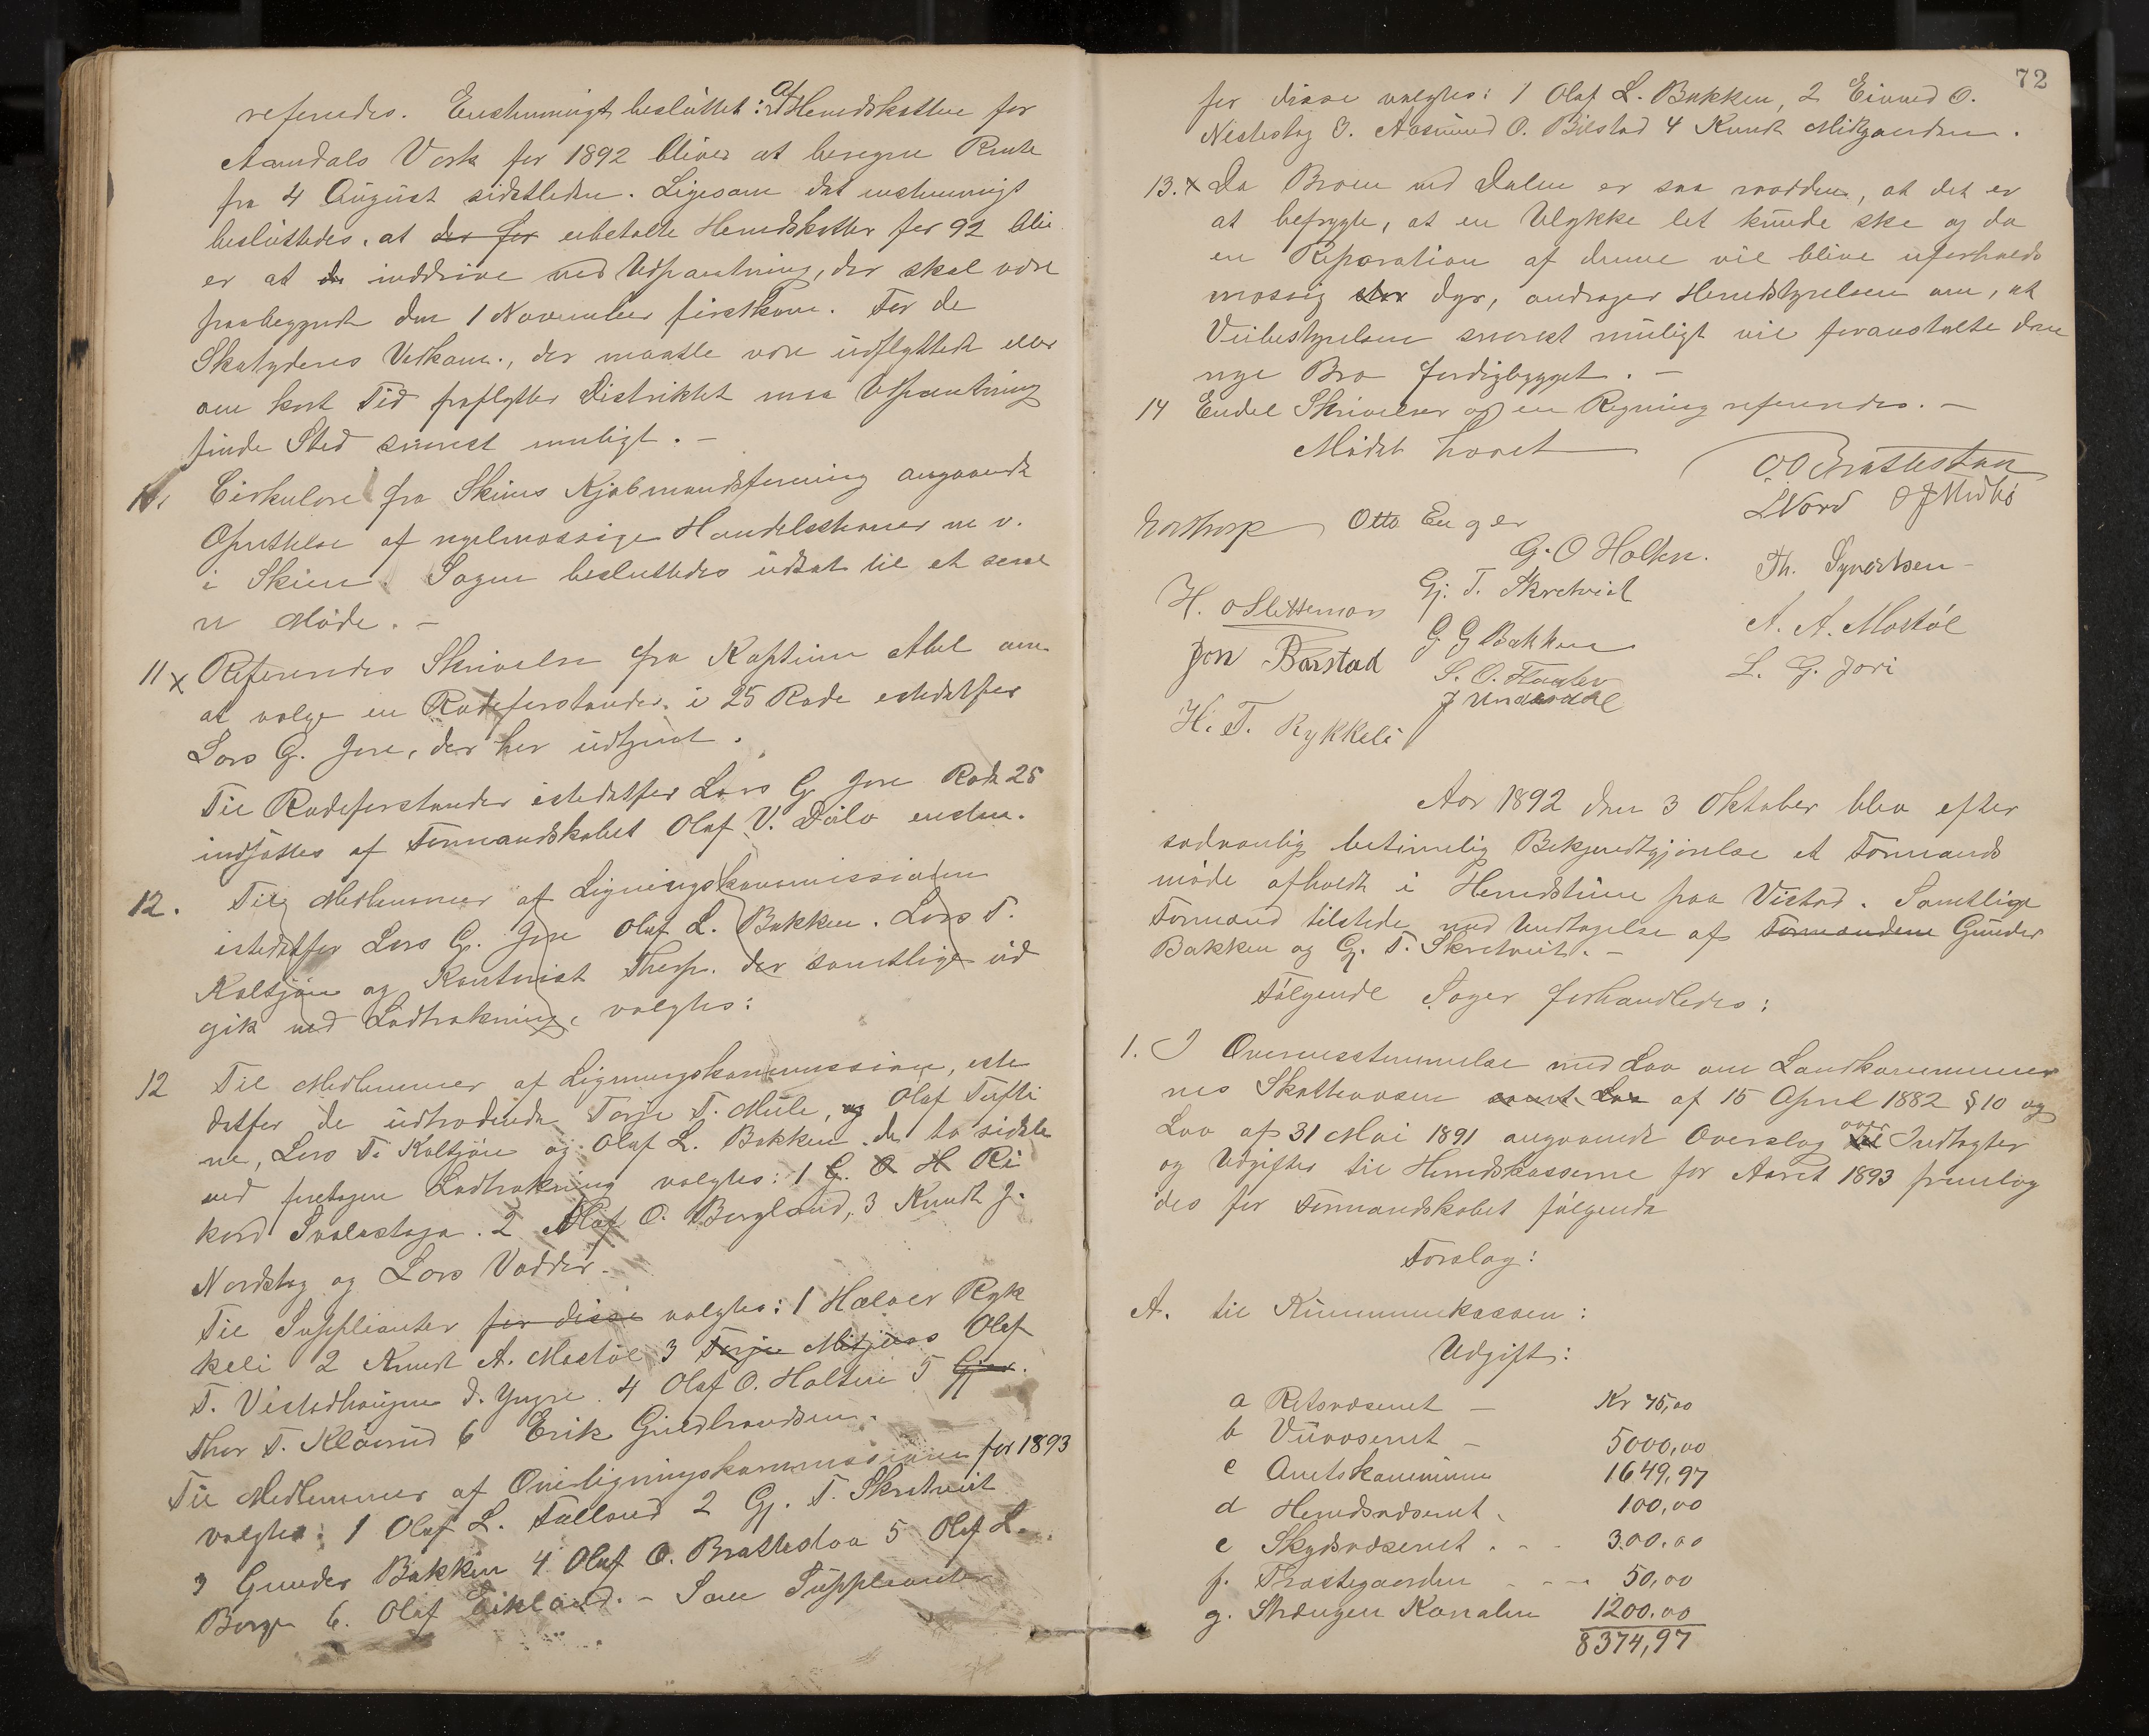 refereredes. Enstemmigt besluttet: At Heredskatten for
Aamdals Værk for 1892 bliver at beregne Rente
fra 4 August sidstleden. Ligesom det enstemmigt
besluttedes, at der for ubetalte Heredskatter for 92 bli
er at de inddrive ved Udpantning, der skal være
paabegyndt den 1 November førstkom. For de
Skatyderes Vedkom., der maatte være udflyttede eller
om kort Tid fraflytter Distriktet maa Udpantning
finde Sted snarest muligt. –
10. Cirkulære fra Skiens Kjøbmandsforening angaaende
Oprettelse af regelmæssige Handelsstevner m. v.
i Skien. Sagen besluttedes udsat til et sene
re Møde. –
11 x Refereredes Skrivelse fra Kaptein Abel om
at vælge en Rodeforstander i 25 Rode istedetfor
Lars G. Jore, der har udtjent.
Til Rodeforstander istedetfor Lars G Jore Rode 25
indsattes af Formandskabet Olaf V. Dalo enstem.
12. Til Medlemmer af Ligningskommissionen
istedetfor Lars G. Jore Olaf L. Bakken. Lars T.
Kaltjøn og Kontorist Thorp. der samtlige ud
gik ved Lodtrækning, valgtes:
12 Til Medlemmer af Ligningskommission, iste
detfor de udtrædende Torje T. Mule, og Olaf Tufti
ne, Lars T. Kaltjøn og Olaf L. Bakken de to sidste
ved foretagen Lodtrækning valgtes: 1 G. O H Ri
kard Svalastoga. 2 Olaf O. Bergland, 3 Knudt J.
Nordstog og Lars Vadder.
Til Supplianter for disse valgtes: 1 Halvor Ryk
keli 2 Knudt A. Mostøl 3 Torje Mitjaas Olaf
T. Vistadhaugen d. Yngre. 4 Olaf O. Holten 5 Gjer.
Thor T. Klaarud 6 Erik Guldbrandsen.
Til Medlemmer af Overligningskommissionen for 1893
valgtes: 1 Olaf L. Felland 2 Gj. T. Skretveit
3 Gunder Bakken 4. Olaf O. Brattestaa 5 Olaf L.
Borge 6. Olaf Eikland. – Som Supplianter
72
for disse valgtes: 1 Olaf L. Bakken, 2 Eivind O.
Nestestog 3. Aasmund O. Bilstad 4 Knudt Midgaarden.
13. x Da Broen ved Dalen er saa raadden, at det er
at befrygte, at en Ulykke let kunde ske og da
en Reparation af denne vil blive uforholds
mæssig stor dyr, andrager Heredstyrelsen om, at
Veibestyrelsen snarest muligt vil foranstalte den
nye Bro færdigbygget. –
14 Endel Skrivelser og en Regning refereredes. –
Mødet hævet
O O Brattestaa
LNord O J Midbø
Otto Enger
G. O Holten.
Th. Syvertsen
H. O Slettemoen
Gj. T. Skretveit
A. A. Mostøl
G G Bakken
Jon Barstad
S. O. Haatev
L. G. Jori
J Underdal
H. T. Rykkeli
Aar 1892 den 3 Oktober blev efter
sedvanlig betimelig Bekjendtgjørelse et Formands
møde afholdt i Heredstuen paa Vistad. Samtlige
Formænd tilstede med Undtagelse af Formændene Gunder
Bakken og Gj. T. Skretveit. –
Følgende Sager forhandledes:
1. I Overensstemmelse med Lov om Landkommuner
nes Skattevæsen samt Lov af 15 April 1882 § 10 og
Lov af 31 Mai 1891 angaaende Overslag Til over Indtægter
og Udgifter til Heredskasserne for Aaret 1893 fremlag
des for Formandskabet følgende
Forslag:
A. til Kommunekassen:
Udgift:
a Retsvæsenet – Kr 75,00
b Veivæsenet – 5000,00
c Amtskommunen 1649,97
d Heredsvæsenet. 100,00
e Skydsvæsenet. - - 300.00
f. Præstegaarden - - - 50,00
g. Strængen Kanalen 1200.00
8374,97